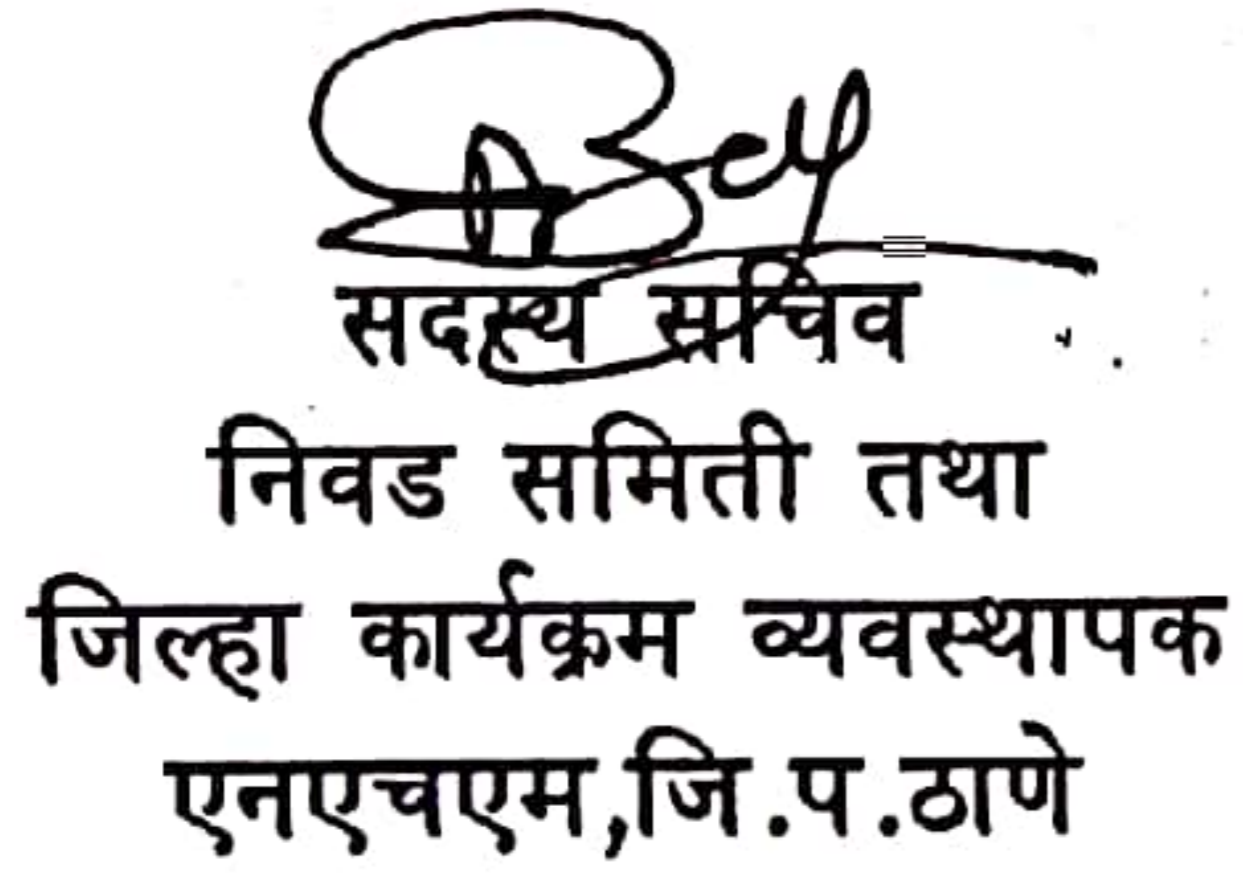 सदस्य सचिव
निवड समिती तथा
जिल्हा कार्यक्रम व्यवस्थापक
एनएचएम,जि.प.ठाणे